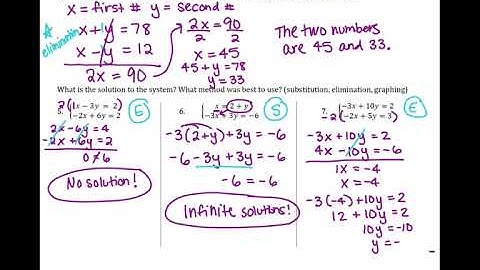 x = first #  y = second #
elimination
x + y = 78
x - y = 12
2x = 90
2x = 90
2  2
x = 45
45 + y = 78
y = 33
The two numbers
are 45 and 33.
What is the solution to the system? What method was best to use? (substitution, elimination, graphing)
5. 2(1x - 3y = 2)
-2x + 6y = 2
E
2x - 6y = 4
-2x + 6y = 2
0 ≠ 6
No solution!
6. x = 2 + y
-3x + 3y = -6
S
-3(2+y)+3y = -6
-6 - 3y + 3y = -6
-6 = -6
Infinite solutions!
7. -3x + 10y = 2
-2(-2x + 5y = 3)
E
-3x + 10y = 2
4x - 10y = -6
1x = -4
x = -4
-3(-4) + 10y = 2
12 + 10y = 2
10y = -10
y = -